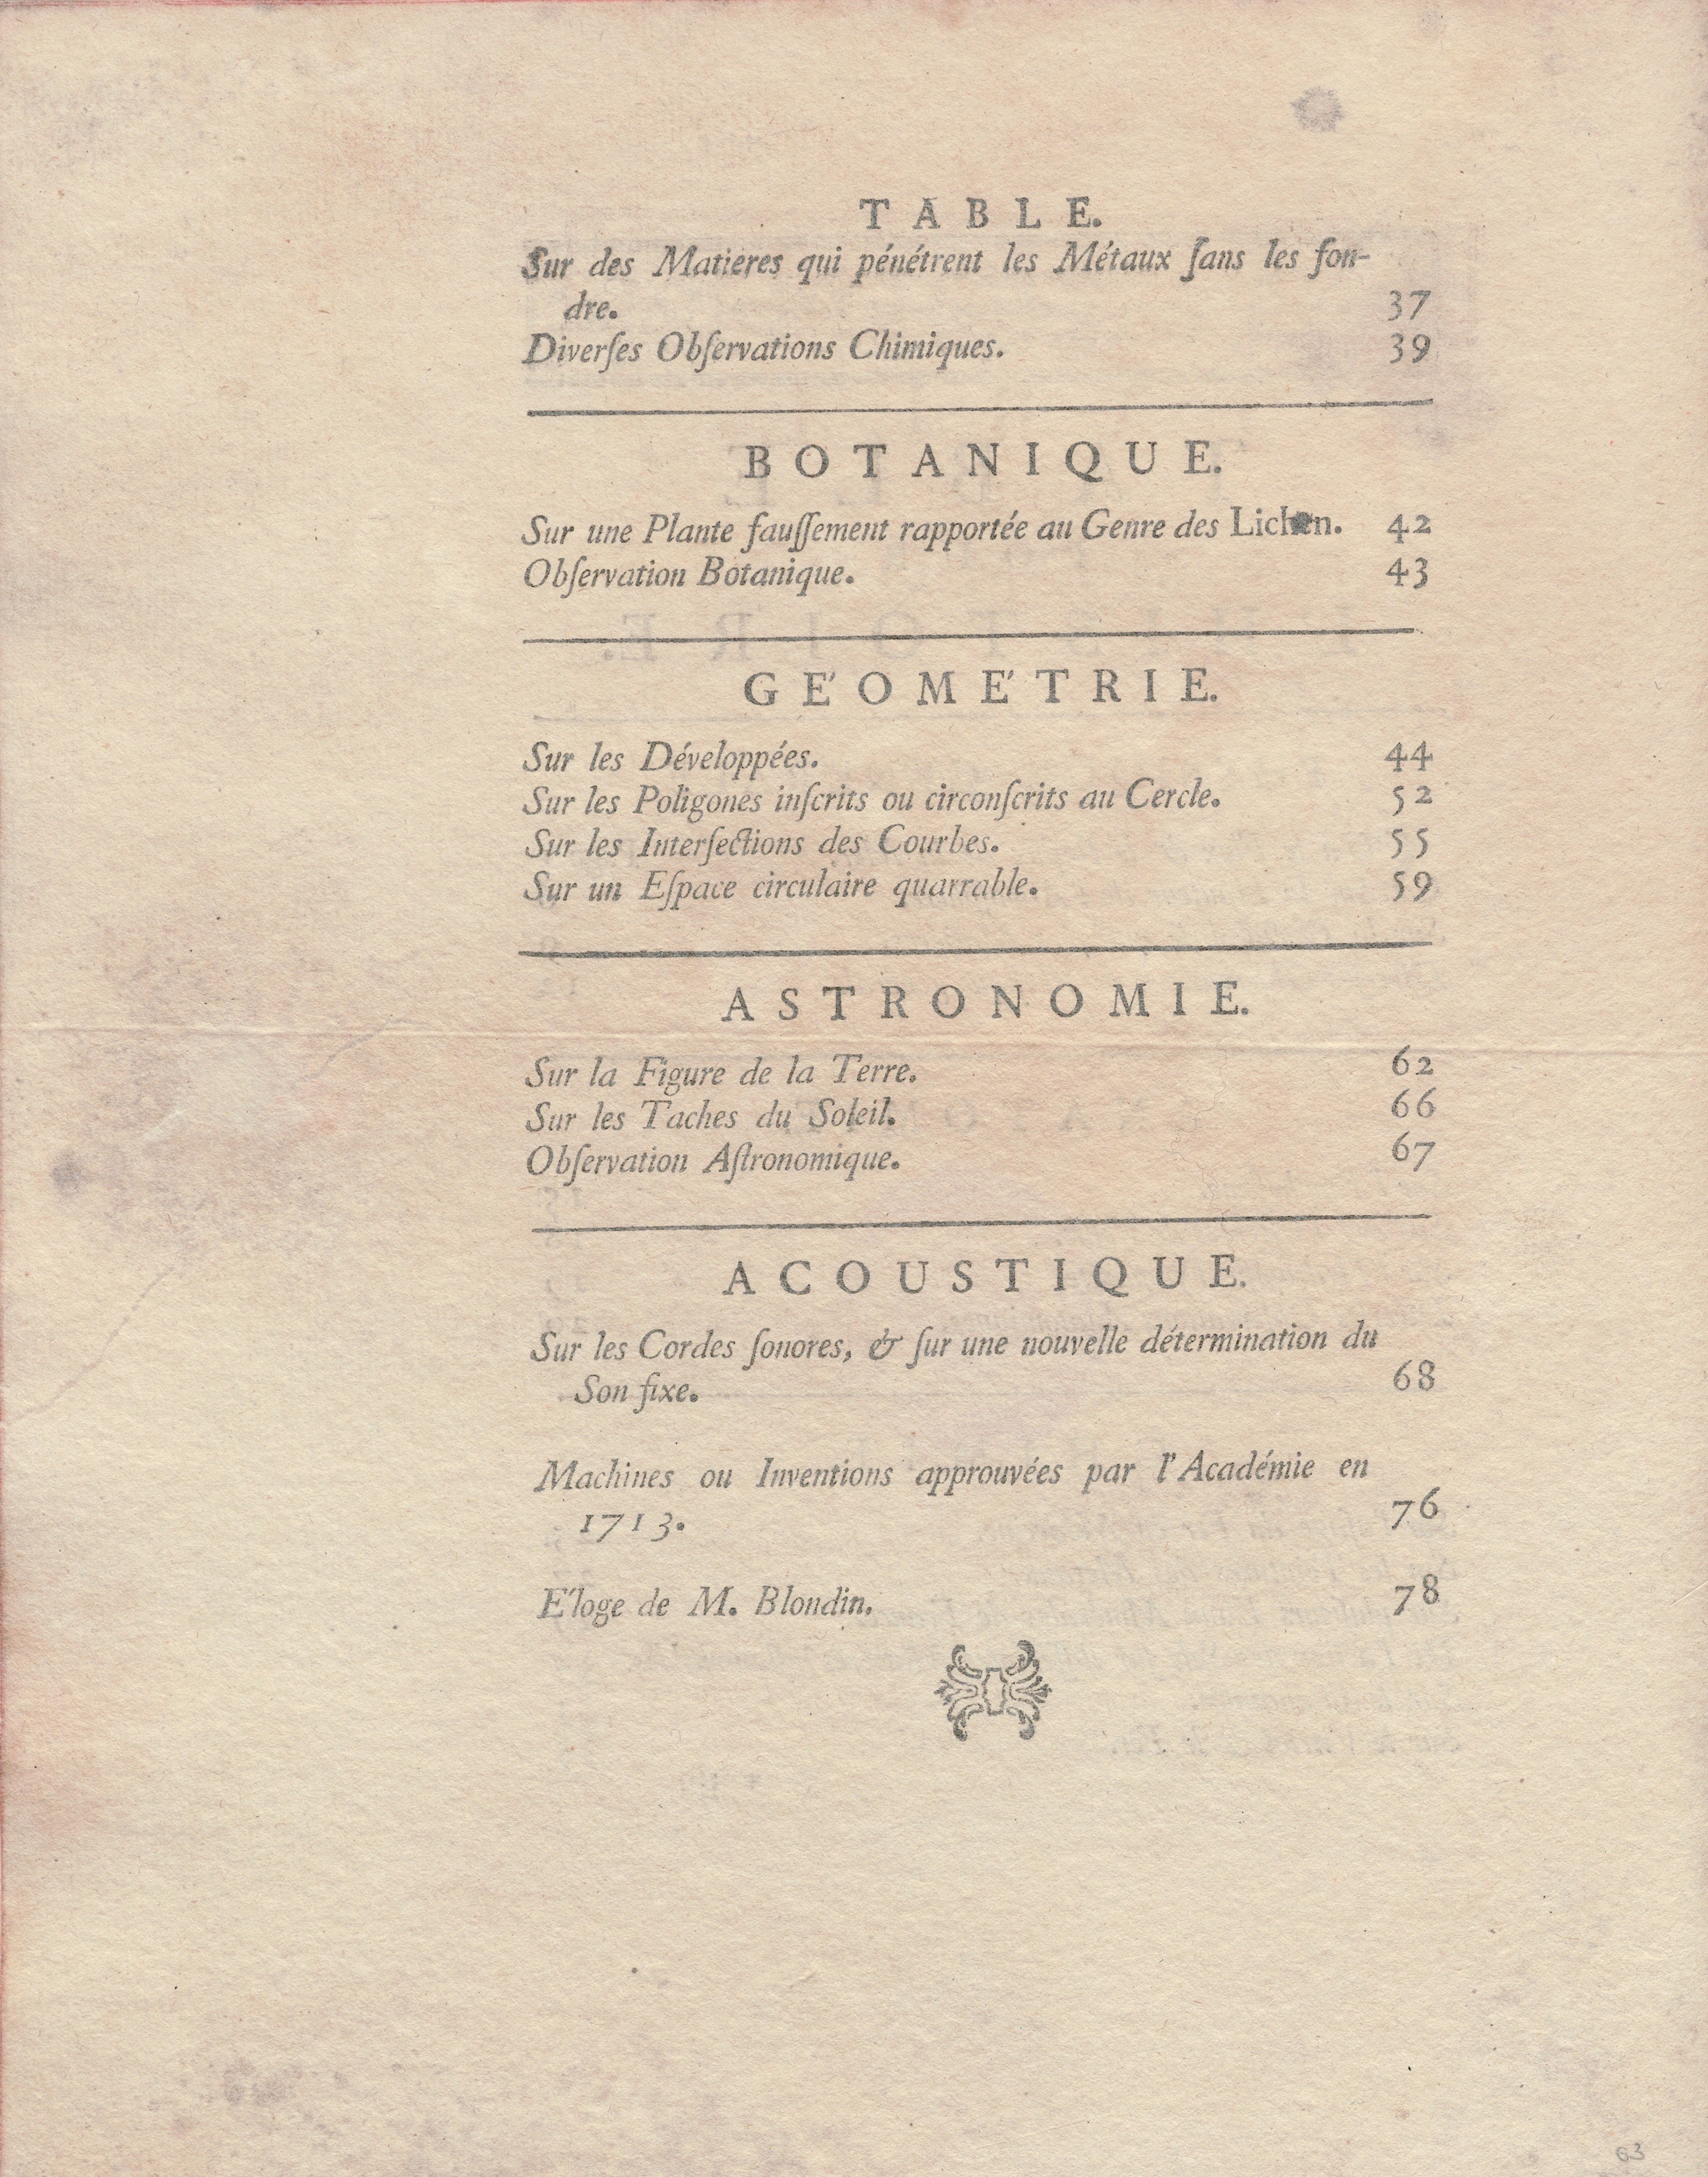 TABLE.
Sur des Matieres qui pénétrent les Métaux ſans les fon-
dre. 37
Diverſes Obſervations Chimiques. 39
BOTANIQUE.
Sur une Plante fauſſement rapportée au Genre des Lichen. 42
Obſervation Botanique. 43
GÉOMÉTRIE.
Sur les Développées. 44
Sur les Poligones inſcrits ou circonſcrits au Cercle. 52
Sur les Interſections des Courbes. 55
Sur un Eſpace circulaire quarrable. 59
ASTRONOMIE.
Sur la Figure de la Terre. 62
Sur les Taches du Soleil. 66
Obſervation Aſtronomique. 67
ACOUSTIQUE.
Sur les Cordes ſonores, & ſur une nouvelle détermination du
Son fixe. 68
Machines ou Inventions approuvées par l'Académie en
1713. 76
Éloge de M. Blondin. 78
63